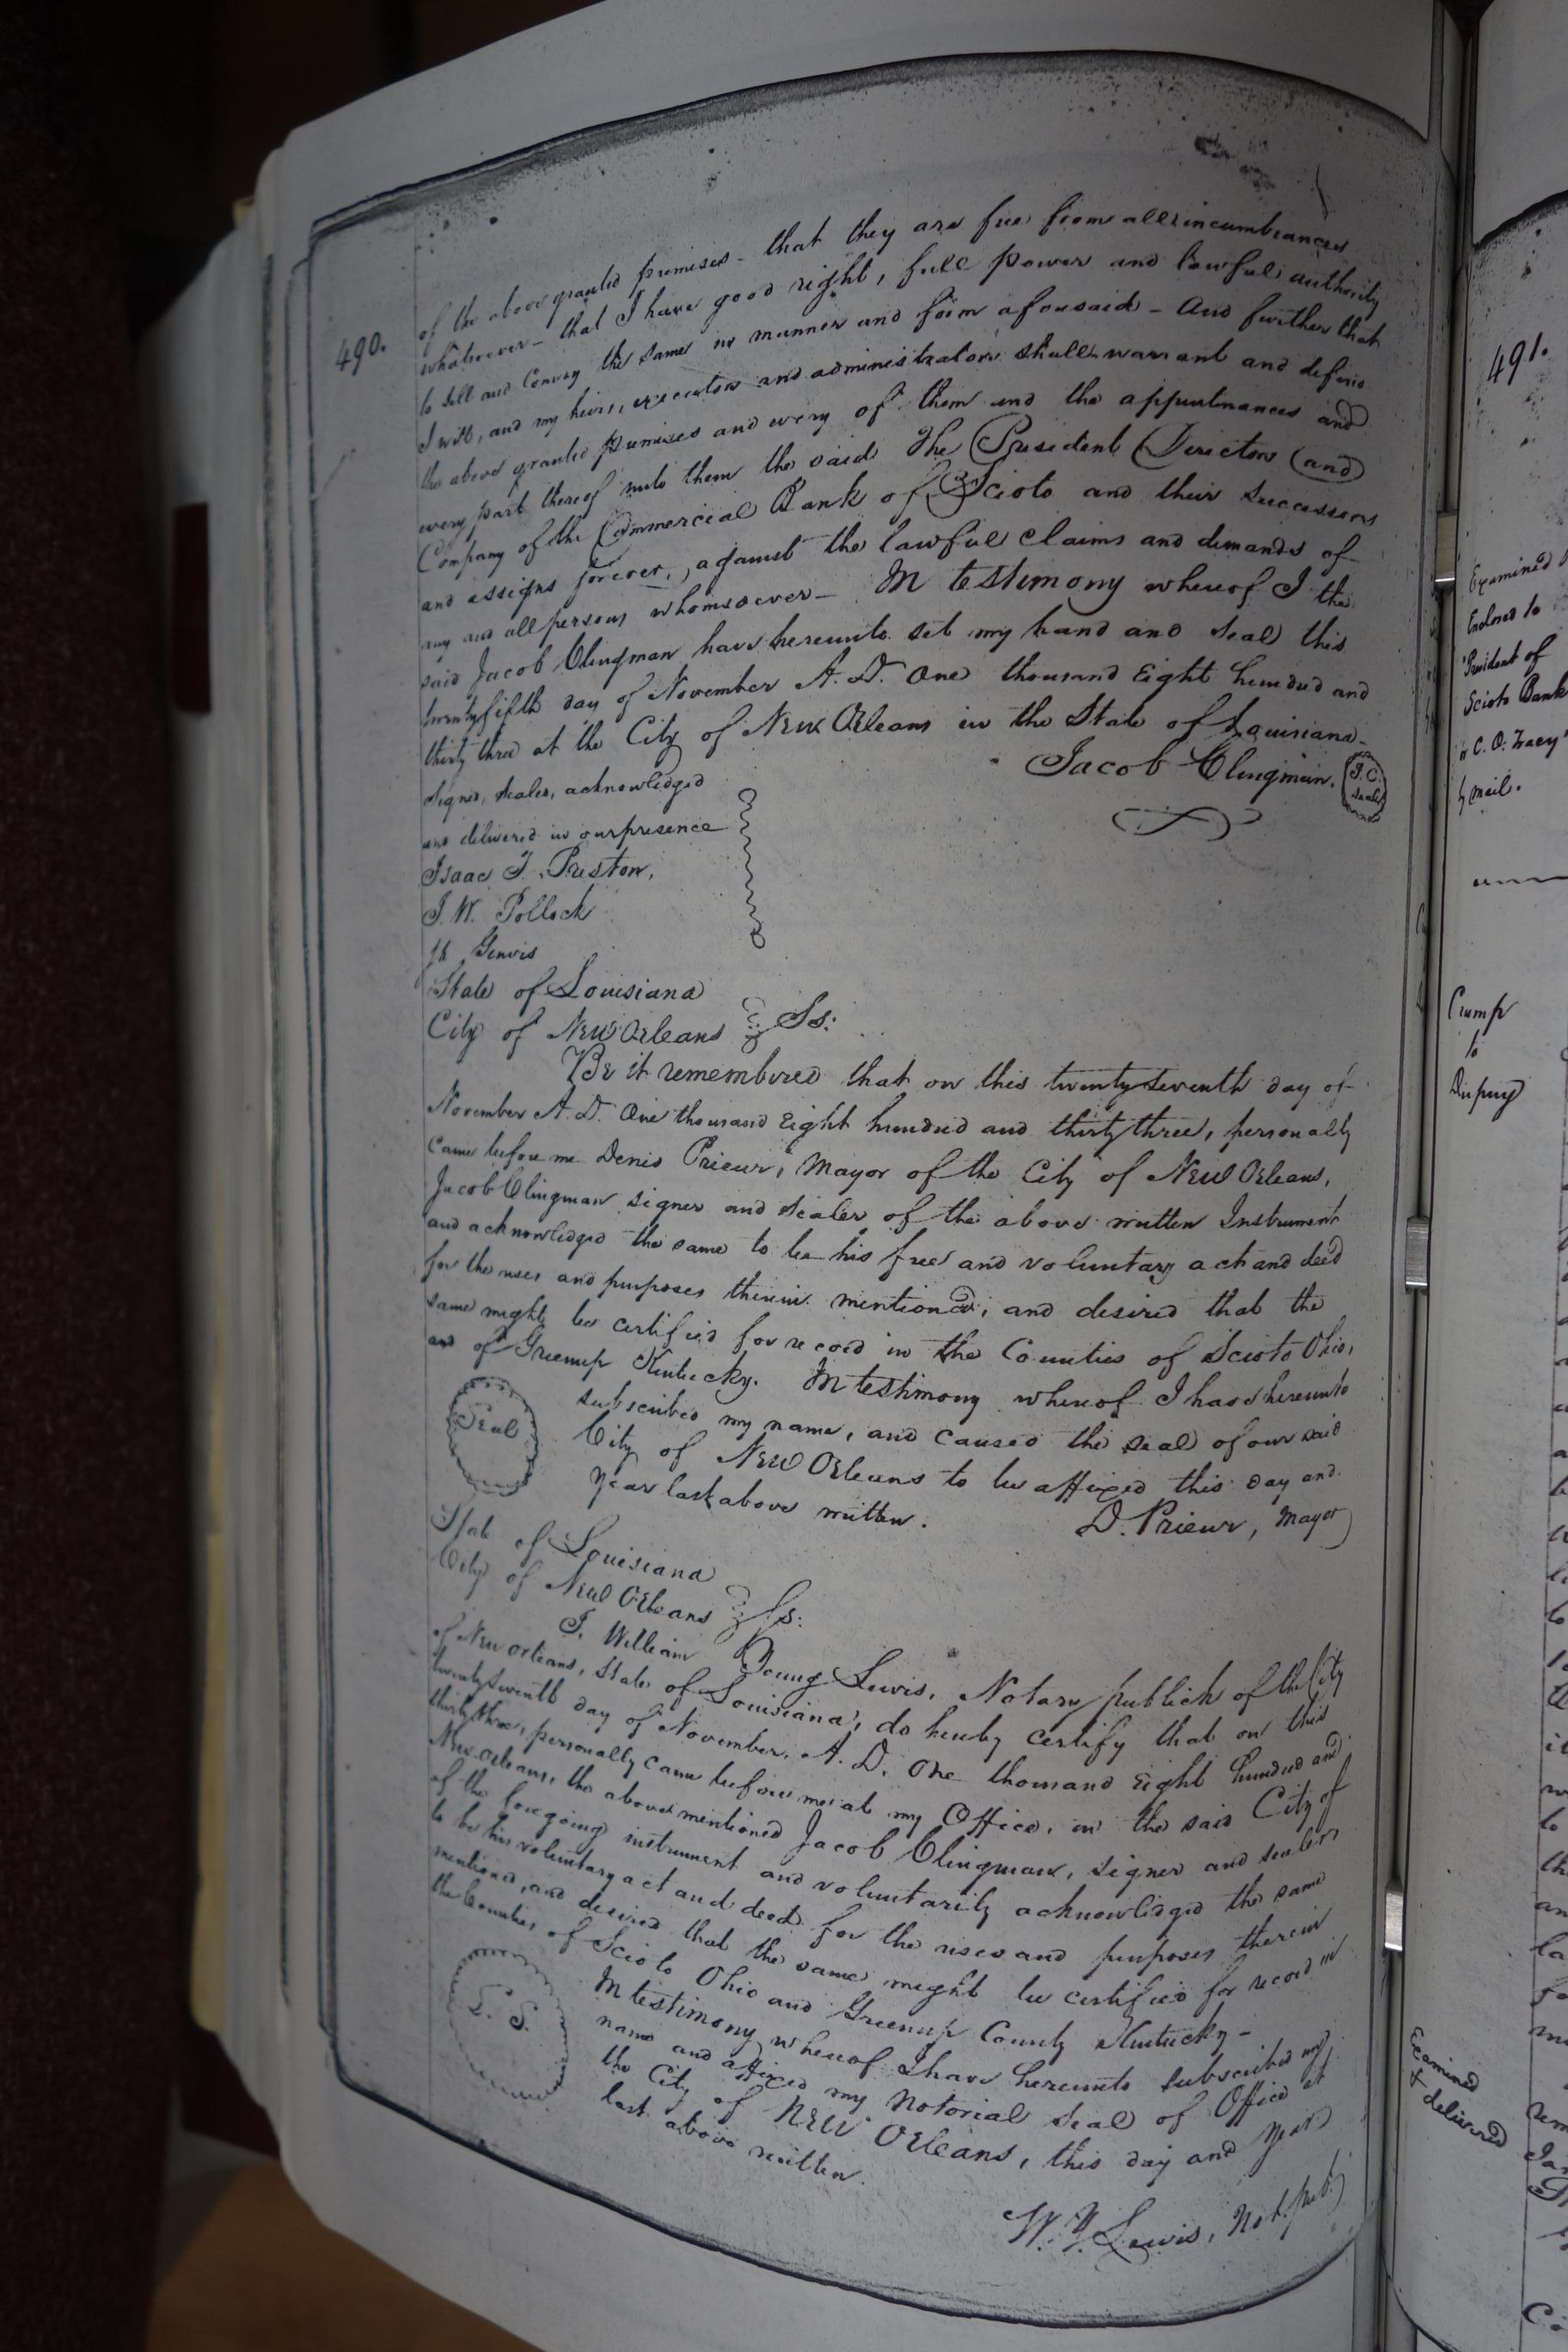 490.
of the above granted premises - that they are free from all incumbrances
whatsoever - that I have good right, full power and lawful authority
to sell and Convey the same in manner and form aforesaid - And further that
I will, and my heirs, executors and administrators shall warrant and defend
the above granted premises and every of them and the appurtenances and
every part thereof unto them the said The President Directors and
Company of the Commercial Bank of Scioto and their successors
and assigns forever, against the lawful claims and demands of
any and all persons whomsoever - In testimony whereof I the
said Jacob Clingman have hereunto set my hand and seal this
twenty fifth day of November A. D. One thousand Eight hundred and
thirty three at the City of New Orleans in the State of Louisiana -
Jacob Clingman. J. C. seal
Signed, sealed, acknowledged
and delivered in our presence
Isaac T. Preston,
J. W. Pollock
Genois
State of Louisiana
City of New Orleans Ss:
Be it remembered that on this twenty seventh day of
November A. D. One thousand Eight hundred and thirty three, personally
came before me Denis Prieur, Mayor of the City of New Orleans,
Jacob Clingman signer and sealer of the above written Instrument
and acknowledged the same to be his free and voluntary act and deed
for the uses and purposes therein mentioned, and desired that the
same might be certified for record in the Counties of Scioto Ohio,
and of Greenup Kentucky. In testimony whereof I have hereunto
subscribed my name, and caused the seal of our said
City of New Orleans to be affixed this day and
Year last above written.
Seal
D. Prieur, Mayor
State of Louisiana
City of New Orleans Ss:
I. William Young Lewis, Notary publick of the City
of New Orleans, State of Louisiana, do hereby certify that on this
twenty seventh day of November, A. D. One thousand Eight hundred and
thirty three, personally came before me at my Office, in the said City of
New Orleans, the above mentioned Jacob Clingman, signer and sealer
of the foregoing instrument and voluntarily acknowledged the same
to be his voluntary act and deed for the uses and purposes therein
mentioned, and desired that the same might be certified for record in
the Counties of Scioto Ohio and Greenup County Kentucky -
In testimony whereof I have hereunto subscribed my
name and affixed my Notorial Seal of Office at
the City of New Orleans, this day and Year
last above written.
L. S.
W. Y. Lewis, Not. pub.
491.
Examined
Endorsed to
President of
Scioto Bank
C. O. Tracy
by mail.
Crump
to
Dupuy
Examined
& delivered